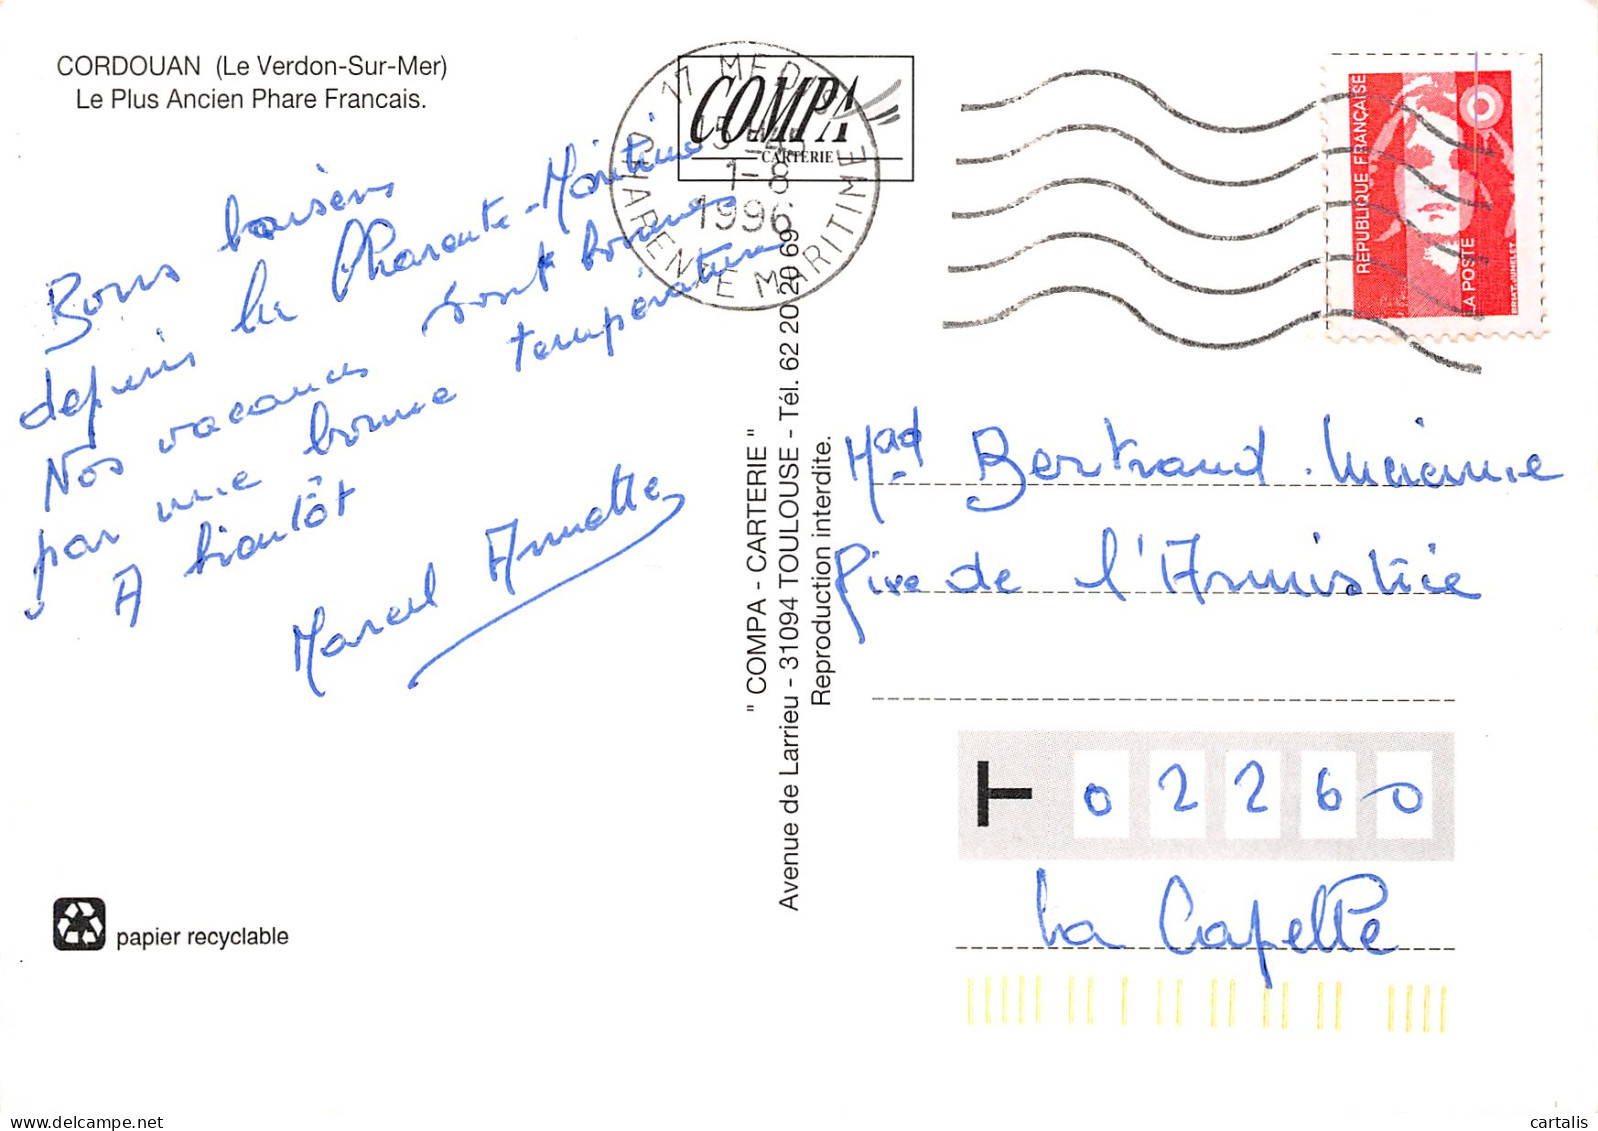 CORDOUAN (Le Verdon-Sur-Mer)
Le Plus Ancien Phare Francais.
Bons baisers
depuis la Charente-Maritime
Nos vacances sont bonnes
par une bonne température
A bientôt
Marcel Annette
papier recyclable
COMPA
CARTERIE
17 MED
15
1-8
1996
CHARENTE MARITIME
" COMPA - CARTERIE "
Avenue de Larrieu - 31094 TOULOUSE - Tél. 62 20 20 69
Reproduction interdite.
REPUBLIQUE FRANÇAISE
LA POSTE
BRIAT-JUMELET
Mad Bertrand Lucienne
de l'Armistice
02260
La Capelle
cartalis